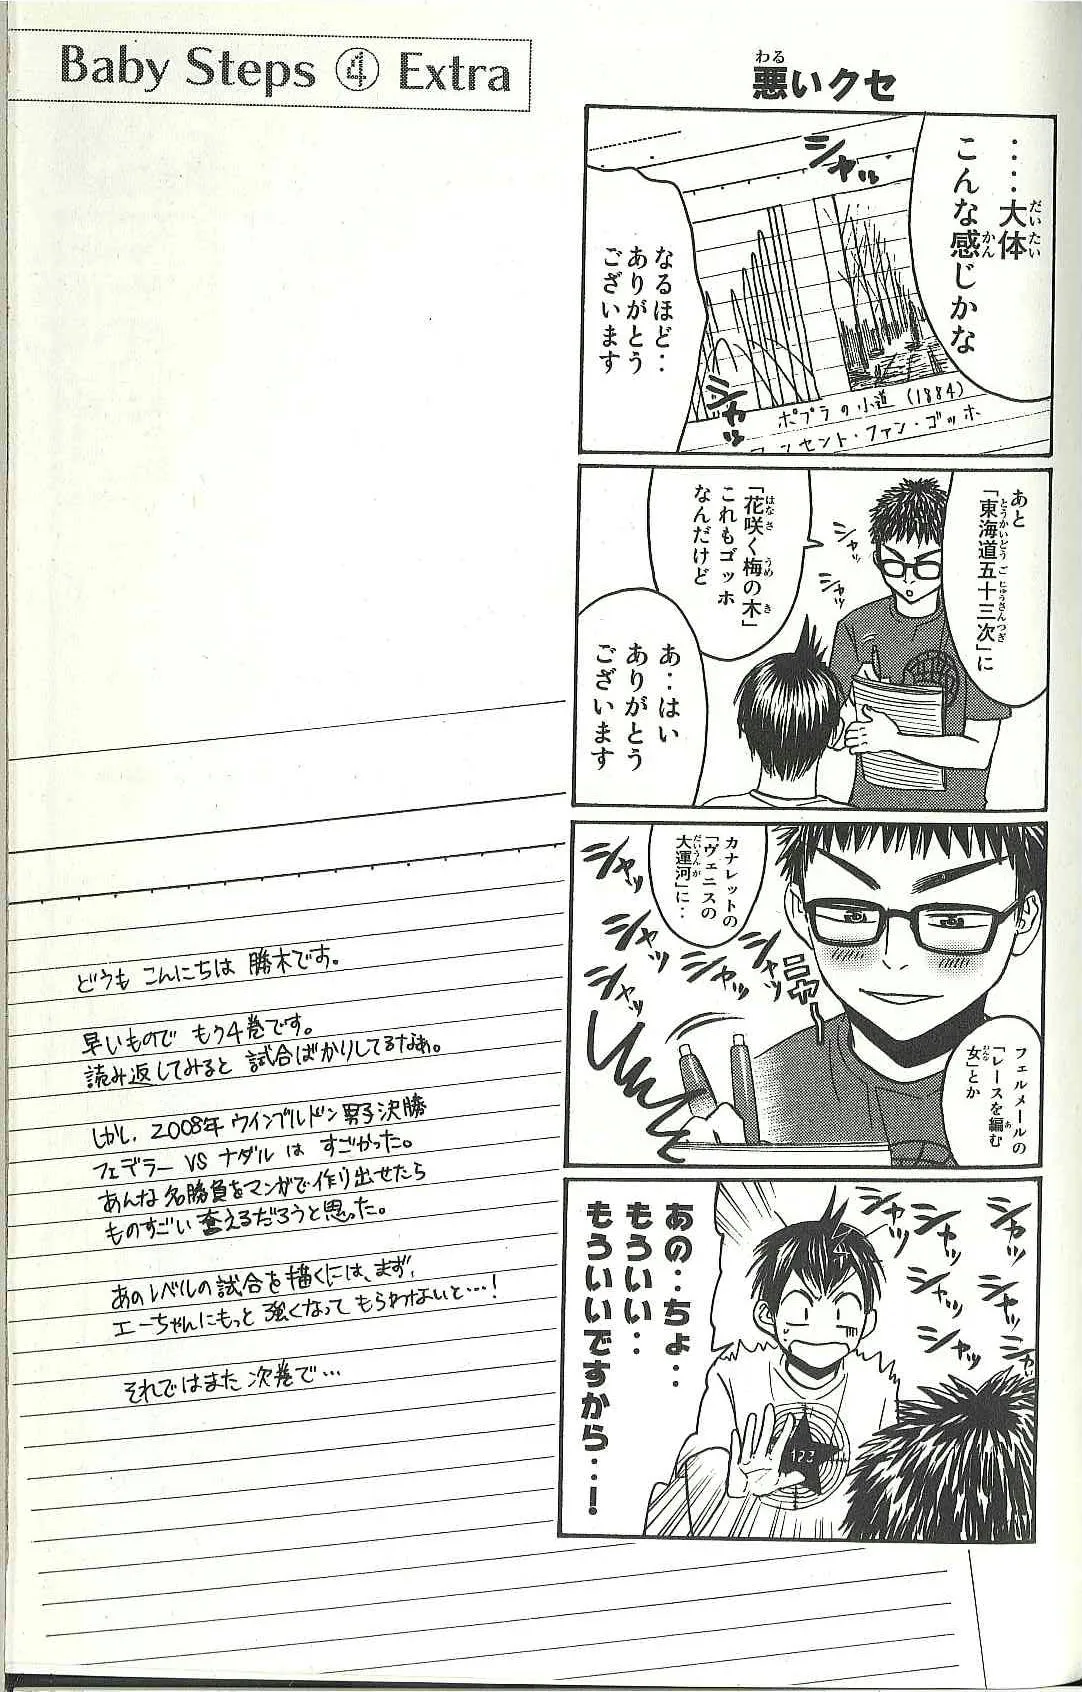 Baby Steps ④ Extra
悪いクセ
‥‥大体
こんな感じかな
シャッ
なるほど‥
ありがとう
ございます
シャッ
ポプラの小道 (1884)
ンセント・ファン・ゴッホ
あと
「東海道五十三次」に
シャッ
シャッ
「花咲く梅の木」
これもゴッホ
なんだけど
あ‥はい
ありがとう
ございます
カナレットの
「ヴェニスの
大運河」に‥
シャッ
シャッ
シャッ
シャッ
シャッ
フェルメールの
「レースを編む
女」とか
シャッ
シャッ
シャッ
シャッ
シャッ
シャッ
シャッ
あの‥ちょ‥
もういい‥
もういいですから‥!
123
どうも こんにちは 勝木です。
早いもので もう4巻です。
読み返してみると 試合ばかりしてるなぁ。
しかし、2008年 ウインブルドン男子決勝
フェデラー VS ナダル は すごかった。
あんな 名勝負をマンガで作り出せたら
ものすごい 萌えるだろうと思った。
あのレベルの試合を描くには、まず、
エーちゃんにもっと 強くなって もらわないと…!
それではまた 次巻で…